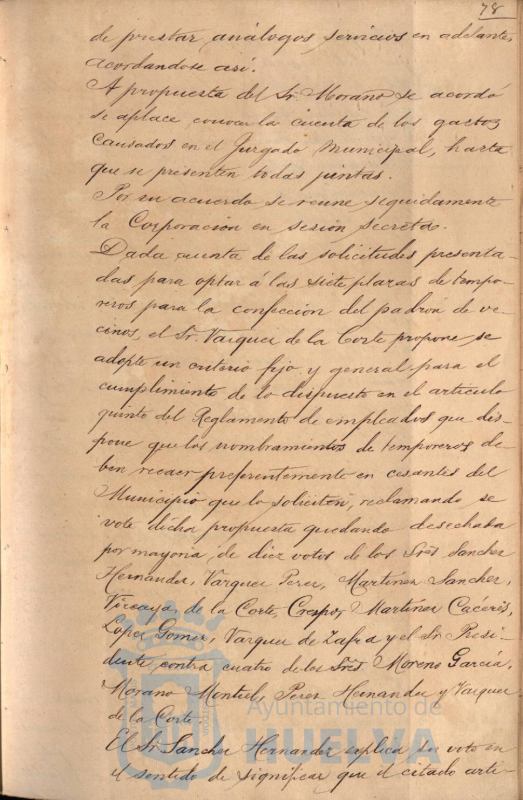 78
de prestar análogos servicios en adelante,
acordandose así.
A propuesta del Sr. Moraño se acordó
se aplace conocer la cuenta de los gastos
causados en el Juzgado Municipal, hasta
que se presenten todas juntas.
Por su acuerdo se reune seguidamente
la Corporacion en sesion secreta.
Dada cuenta de las solicitudes presenta-
das para optar á las siete plazas de tempo-
reros para la confección del padrón de ve-
cinos, el Sr. Vazquez de la Corte propone se
adopte un criterio fijo y general para el
cumplimiento de lo dispuesto en el articulo
quinto del Reglamento de empleados que dis-
pone que los nombramientos de temporeros de-
ben recaer preferentemente en cesantes del
Municipio que lo soliciten, reclamando se
vote dicha propuesta quedando desechada
por mayoria, de diez votos de los Sres. Sanchez
Hernandez, Vazquez Perez, Martinez Sanchez,
Vizcaya, de la Corte, Crespo, Martinez Caceres,
Lopez Gomez, Vazquez de Zafra y el Sr. Presi-
dente, contra cuatro de los Sres. Moreno García,
Morano Montiel, Perez Hernandez y Vazquez
de la Corte.
El Sr. Sanchez Hernandez esplica su voto en
el sentido de significar que el citado arti-
Ayuntamiento de
HUELVA